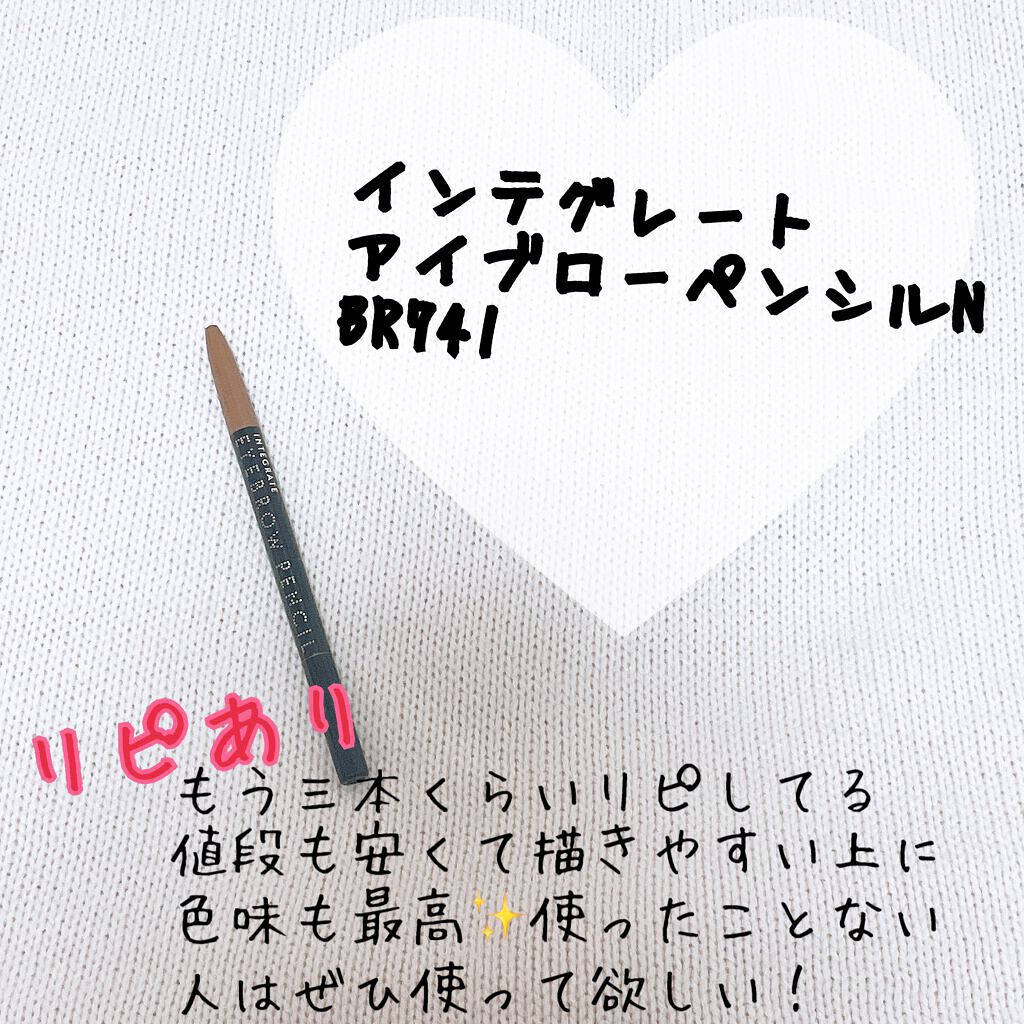 インテグレート
アイブローペンシルN
BR741
INTEGRATE
EYEBROW PENCIL
リピあり
もう三本くらいリピしてる
値段も安くて描きやすい上に
色味も最高✨使ったことない
人はぜひ使って欲しい!